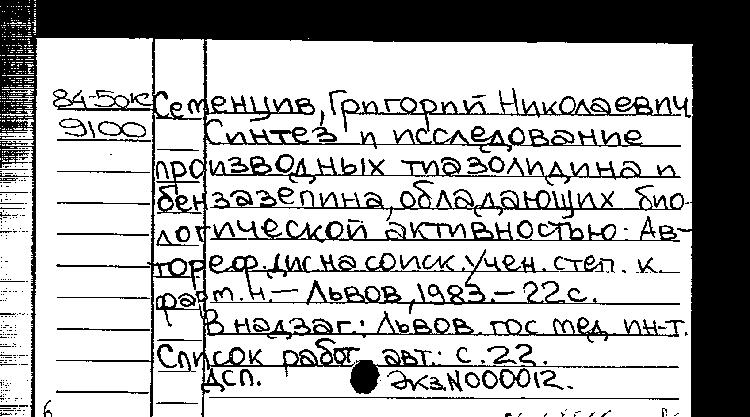 84-50к Семенцив, Григорий Николаевич
9100 Синтез и исследование
производных тиазолидина и
бензазепина, обладающих био-
логической активностью: Ав-
тореф. дис на соиск. учен. степ. к.
фарм. н. — Львов, 1983. — 22 с.
В надзаг.: Львов. гос мед. ин-т.
Список работ авт.: с. 22.
ДСП. Экз. N000012.
6